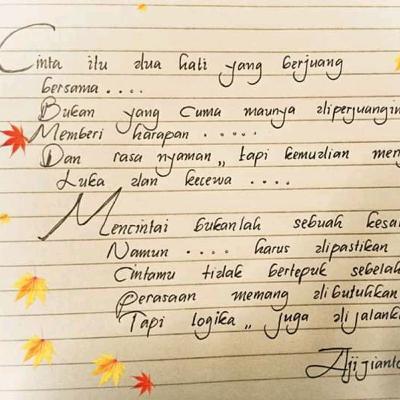 Cinta itu dua hati yang berjuang
bersama....
Bukan yang cuma maunya diperjuangin
Memberi harapan .....
Dan rasa nyaman,, tapi kemudian
Luka dan kecewa ....
Mencintai bukanlah sebuah
Namun .... harus dipastikan
Cintamu tidak bertepuk sebelah
Perasaan memang dibutuhkan
Tapi logika,, juga